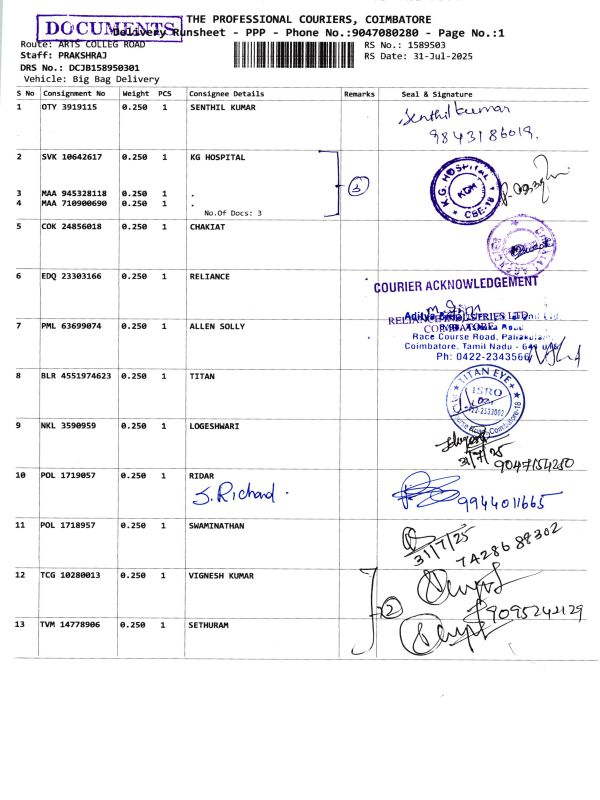 DOCUMENTS
THE PROFESSIONAL COURIERS, COIMBATORE
Delivery Runsheet - PPP - Phone No.:9047080280 - Page No.:1
Route: ARTS COLLEG ROAD
RS No.: 1589503
Staff: PRAKSHRAJ
RS Date: 31-Jul-2025
DRS No.: DCJB158950301
Vehicle: Big Bag Delivery
S No Consignment No Weight PCS Consignee Details Remarks Seal & Signature
1 OTY 3919115 0.250 1 SENTHIL KUMAR
Senthil kumar
9843186019.
2 SVK 10642617 0.250 1 KG HOSPITAL
3 MAA 945328118 0.250 1 .
4 MAA 710900690 0.250 1 .
No.Of Docs: 3
3
K.G. HOSPITAL
KGH
CBE-18
5 COK 24856018 0.250 1 CHAKIAT
6 EDQ 23303166 0.250 1 RELIANCE
COURIER ACKNOWLEDGEMENT
7 PML 63699074 0.250 1 ALLEN SOLLY
Race Course Road,
Coimbatore, Tamil Nadu -
Ph: 0422-2343566
8 BLR 4551974623 0.250 1 TITAN
TITAN EYE+
ISRO
9 NKL 3590959 0.250 1 LOGESHWARI
31/7/25
9047154250
10 POL 1719057 0.250 1 RIDAR
S. Richard.
9944011665
11 POL 1718957 0.250 1 SWAMINATHAN
31/7/25
7428688302
12 TCG 10280013 0.250 1 VIGNESH KUMAR
2
9095242129
13 TVM 14778906 0.250 1 SETHURAM